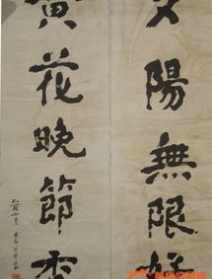 夕陽無限好
黃花晚節香